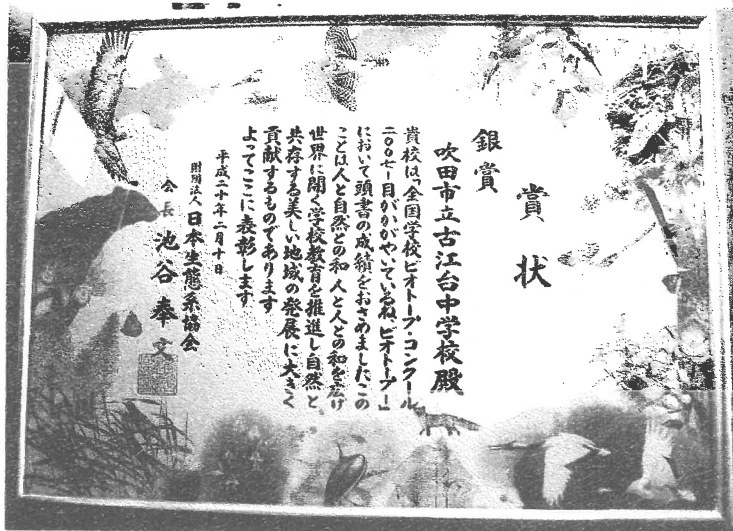 賞状
銀賞
吹田市立古江台中学校殿
貴校は、「全国学校ビオトープ・コンクール
二〇〇七－目がかがやいているね、ビオトープ－」
において頭書の成績をおさめましたこの
ことは人と自然との和 人と人との和を広げ
世界に開く学校教育を推進し自然と
共存する美しい地域の発展に大きく
貢献するものであります
よってここに表彰します
平成二十年二月十日
財団法人 日本生態系協会
会長 池谷奉文